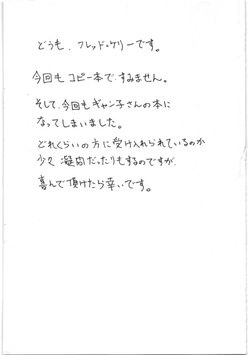 どうも、フレッド・ケリーです。
今回も コピー本で、すみません。
そして、今回もギャン子さんの本に
なってしまいました。
どれくらいの方に受け入れられているのか
少々 疑問だったりもするのですが、
喜んで頂けたら幸いです。